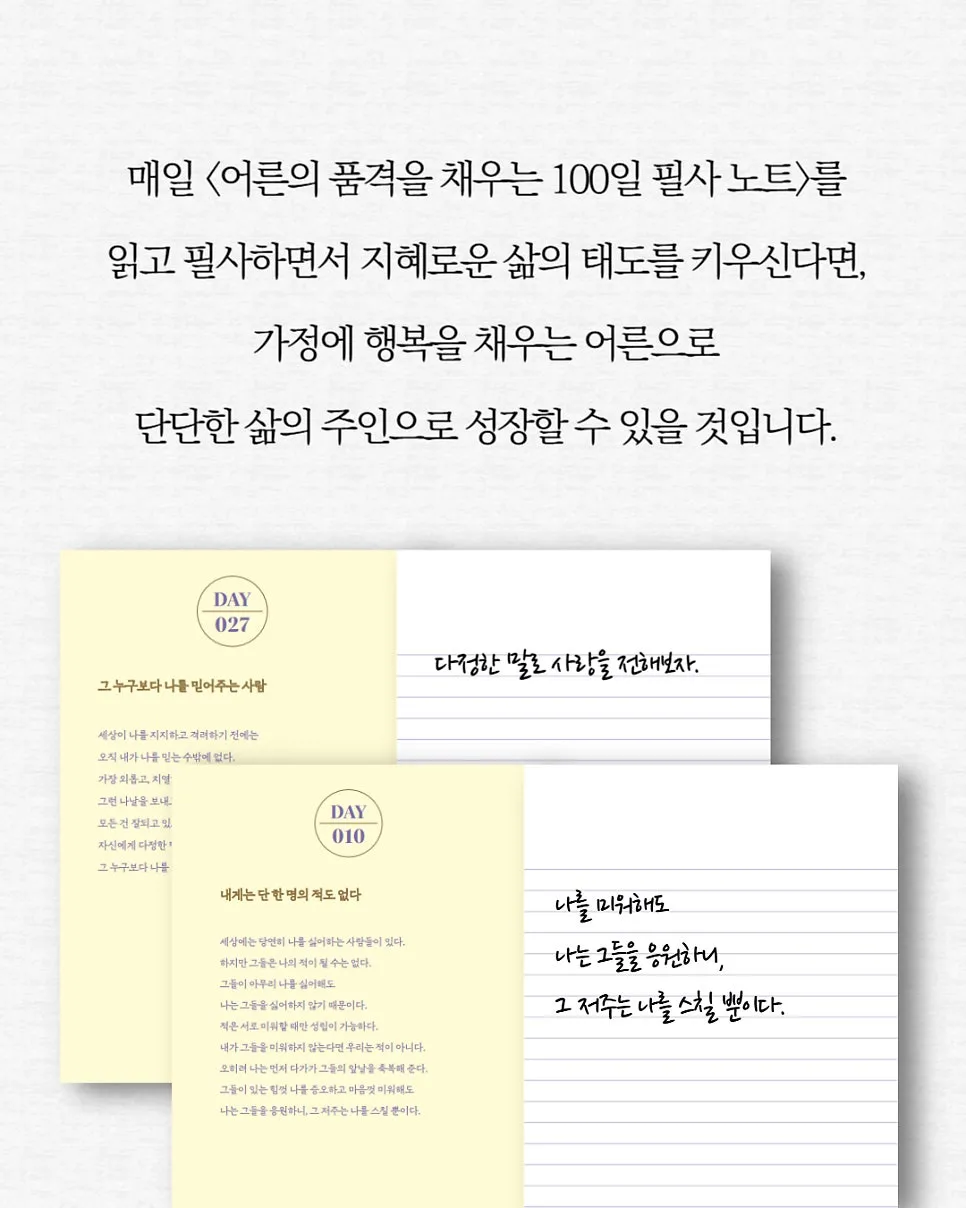 매일 〈어른의 품격을 채우는 100일 필사 노트〉를
읽고 필사하면서 지혜로운 삶의 태도를 키우신다면,
가정에 행복을 채우는 어른으로
단단한 삶의 주인으로 성장할 수 있을 것입니다.
DAY
027
그 누구보다 나를 믿어주는 사람
세상이 나를 지지하고 격려하기 전에는
오직 내가 나를 믿는 수밖에 없다.
가장 외롭고, 치열
그런 나날을 보내
모든 건 잘되고 있
자신에게 다정한
그 누구보다 나를
다정한 말로 사랑을 전해보자.
DAY
010
내게는 단 한 명의 적도 없다
세상에는 당연히 나를 싫어하는 사람들이 있다.
하지만 그들은 나의 적이 될 수는 없다.
그들이 아무리 나를 싫어해도
나는 그들을 싫어하지 않기 때문이다.
적은 서로 미워할 때만 성립이 가능하다.
내가 그들을 미워하지 않는다면 우리는 적이 아니다.
오히려 나는 먼저 다가가 그들의 앞날을 축복해 준다.
그들이 있는 힘껏 나를 증오하고 마음껏 미워해도
나는 그들을 응원하니, 그 저주는 나를 스칠 뿐이다.
나를 미워해도
나는 그들을 응원하니,
그 저주는 나를 스칠 뿐이다.